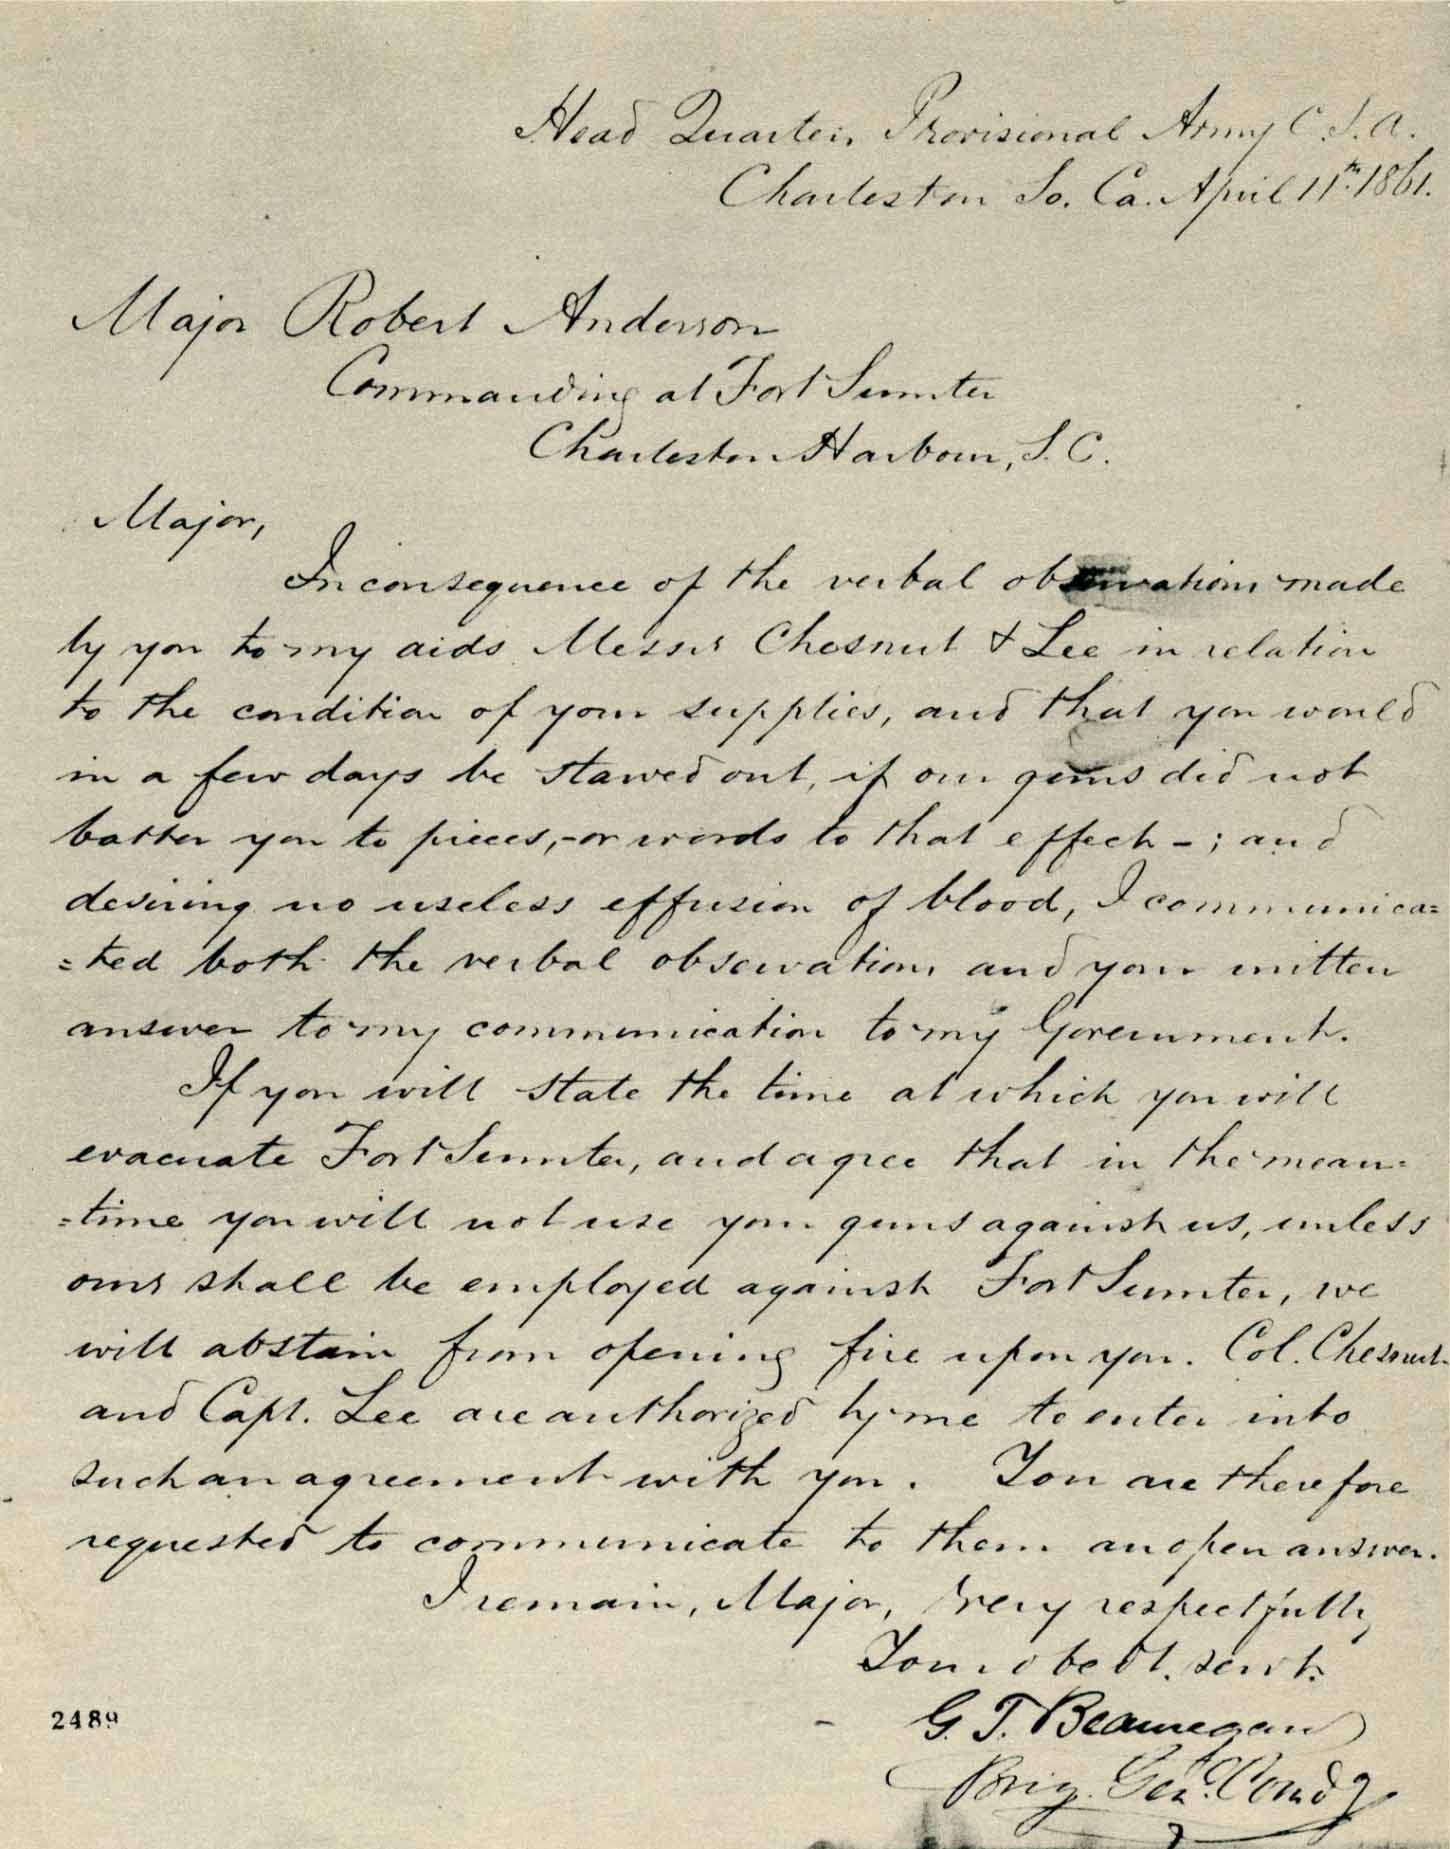 Head Quarters Provisional Army C.S.A.
Charleston So. Ca. April 11th. 1861.
Major Robert Anderson
Commanding at Fort Sumter
Charleston Harbour, S.C.
Major,
In consequence of the verbal observations made
by you to my aids Messrs Chesnut & Lee in relation
to the condition of your supplies, and that you would
in a few days be starved out, if our guns did not
batter you to pieces,-or words to that effect-; and
desiring no useless effusion of blood, I communica=
=ted both the verbal observations and your written
answer to my communication to my Government.
If you will state the time at which you will
evacuate Fort Sumter, and agree that in the mean=
=time you will not use your guns against us, unless
ours shall be employed against Fort Sumter, we
will abstain from opening fire upon you. Col. Chesnut
and Capt. Lee are authorized by me to enter into
such an agreement with you. You are therefore
requested to communicate to them an open answer.
I remain, Major, very respectfully
Your obedt. servt.
G. T. Beauregard
Brig. Genl. Comdg
2489